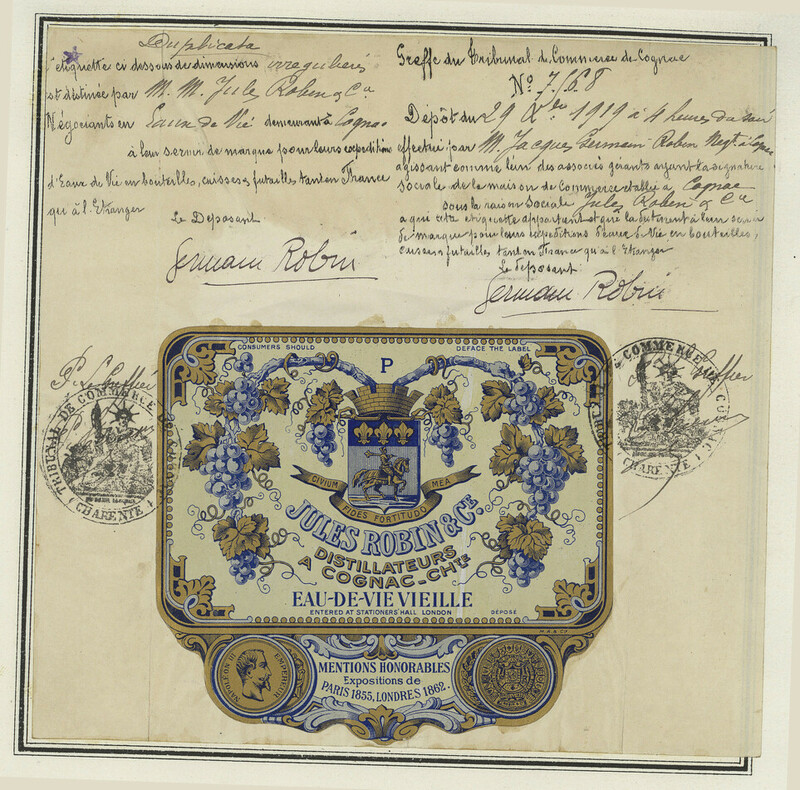 Duplicata
L'etiquette ci dessous de dimensions irregulieres
est destinée par M. M. Jules Robin & Cie
Négociants en Eaux de Vie demeurant à Cognac
à leur servir de marque pour leurs expeditions
d'Eaux de Vie en bouteilles, caisses & futailles tant en France
qu'à l'Etranger
Le Deposant
Germain Robin
Greffe du Tribunal de Commerce de Cognac
No 7168
Dépôt du 29 Xbre 1919 à 4 heures du soir
effectué par M. Jacques Germain Robin Negt. à Cognac
agissant comme l'un des associés gérants ayant la signature
sociale de la maison de Commerce etablie à Cognac
sous la raison sociale Jules Robin & Cie
a qui cette etiquette appartient et qui la destinent à leur servir
de marque pour leurs expeditions d'eaux de Vie en bouteilles,
caisses & futailles tant en France qu'à l'Etranger
Le deposant
Germain Robin
P. Le Greffier
TRIBUNAL DE COMMERCE
(CHARENTE)
Greffier
COMMERCE
CHARENTE
CONSUMERS SHOULD
DEFACE THE LABEL
P
CIVIUM
MEA
FIDES FORTITUDO
JULES ROBIN & CIE
DISTILLATEURS
A COGNAC-CHTE
EAU-DE-VIE VIEILLE
ENTERED AT STATIONERS' HALL LONDON
DÉPOSÉ
NAPOLEON III
EMPEREUR
MENTIONS HONORABLES
Expositions de
PARIS 1855, LONDRES 1862.